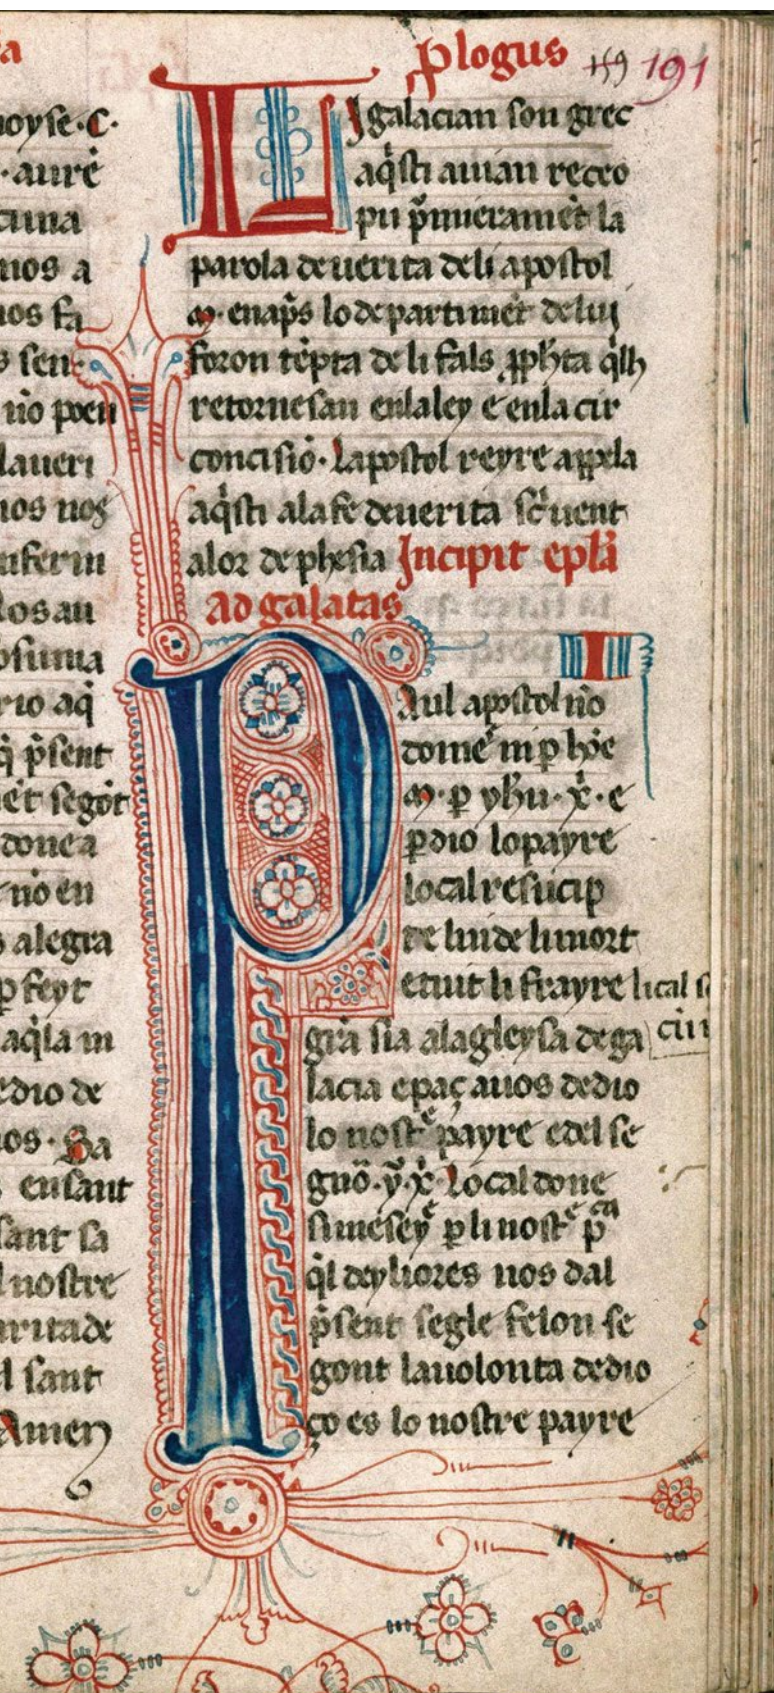 a
noyse·C·
·aure̅
cuna
nos a
nos fa
s sen·
no̅ poeu
laueri
nos nos
nferm
losau
osuma
rio aq̇
q̇ p̅sent
et segōt
doue a
no̅ en
s alegra
p feyt
aq̇la m
edio de
nos· Ba
s ensant
sant sa
l nostre
aritade
l sant
Amen
Plogus 159 191
LI galacian son grec
aq̇sti auian receo
pu p̅mierame̅t la
parola de uerita deli apostol
m· enap̅s lo departime̅t de lui
foron te̅pta de li fals ꝓph̅ta q̇lh
retornesan en la ley e en la cir
concisio̅· Lapostol reyre appela
aq̇sti a la fe de uerita sc̅uent
a lor de phesia Incipit epl̅a
ad galatas
I
PAul apostol no̅
d'ome̅ ni p ho̅e
m· p yh̅u· x̅· e
p dio lo payre
lo cal resucip
te lui de li mort
e tuit li frayre li cal s
cu̅
gr̅a sia a la gleysa de ga
lacia e paç a uos de dio
lo nostͤ payre e del se
gno̅· y̅· x̅· Local done
si meseyͤ p li nostͤ p̅ca
q̇l deyliores nos dal
p̅sent segle felon se
gont la uolonta de dio
ço es lo nostre payre